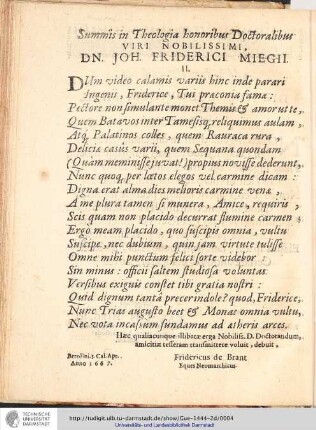 Summis in Theologia honoribus Doctoralibus
VIRI NOBILISSIMI,
DN. JOH. FRIDERICI MIEGII.
II.
DUm video calamis variis hinc inde parari
Ingenii, Friderice, Tui praeconia fama:
Pectore non simulante monet Themis & amor ut te,
Quem Batavos inter Tamesisq; reliquimus aulam,
Atq; Palatinos colles, quem Rauraca rura,
Deliciae casus varii, quem Sequana quondam
(Quàm meminisse juvat!) propius novisse dederunt,
Nunc quoq; per laetos elegos vel carmine dicam:
Digna erat alma dies melioris carmine venae,
A me plura tamen si munera, Amice, requiris,
Scis quam non placido decurrat flumine carmen;
Ergo meam placido, quo suscipis omnia, vultu
Suscipe, nec dubium, quin jam virtute tulisse
Omne mihi punctum felici sorte videbor:
Sin minus: officii saltem studiosa voluntas
Versibus exiguis constet tibi gratia nostri:
Quid dignum tantâ precer indole? quod, Friderice,
Nunc Trias augusto beet & Monas omnia vultu,
Nec vota incassum fundamus ad atheris arces.
Haec qualiacunque illibatae erga Nobiliss. D. Doctorandum,
amicitiae tesseram transmittere voluit, debuit,
Berolini, Cal. Apr.
Anno 1667.
Fridericus de Brant
Eques Neomarchicus
TECHNISCHE
UNIVERSITÄT
DARMSTADT
http://tudigit.ulb.tu-darmstadt.de/show/Gue-1444-2d/0004
Universitäts- und Landesbibliothek Darmstadt